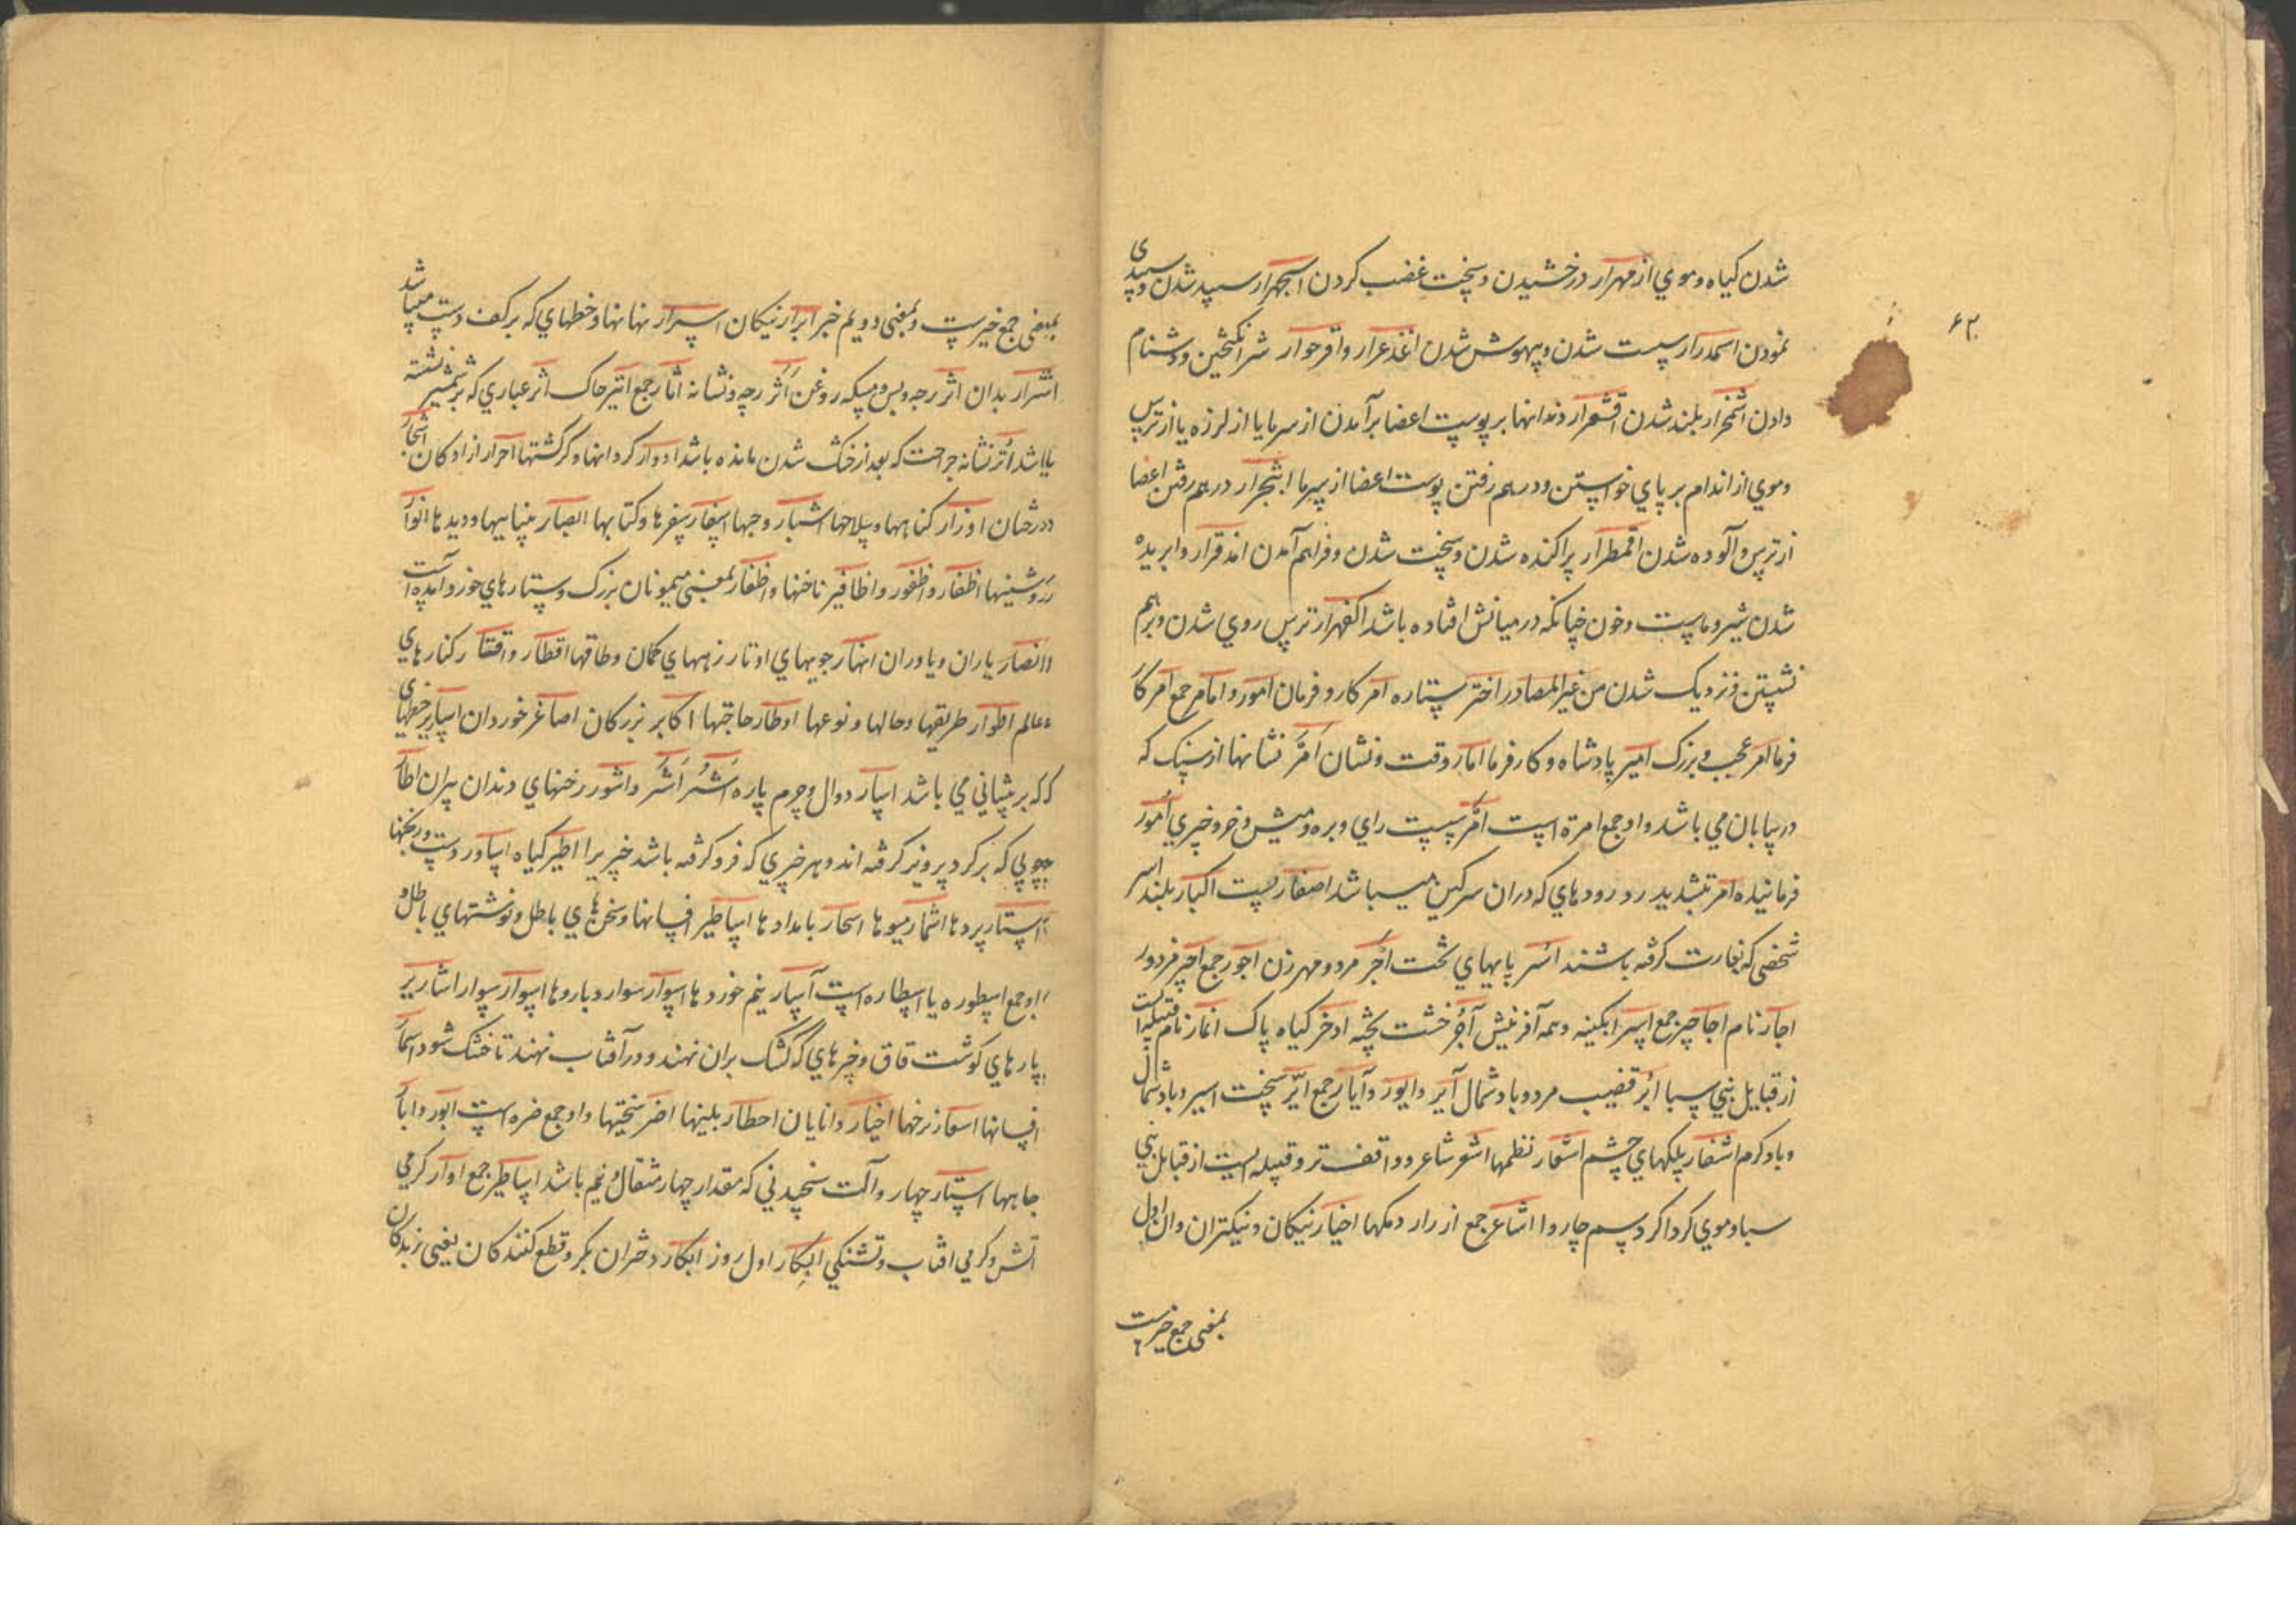 شدن کیاه و موي ازمهرار درخشیدن و سخت غضب کردن اسجهرار سپید شدن و سپیدی
نمودن اسمدرار سست شدن و بیهوش شدن اغذعرار واقرحوار شر انکیختن و دشنام
دادن اشمخرار بلند شدن اقشعرار دندانها بر پوست اعضا برآمدن از سرما یا از لرزه یا از ترس
و موي از اندام بر پاي خواستن و درهم رفتن پوست اعضا از سرما اشجرار درهم رفتن اعضا
از ترس و آلوده شدن اقمطرار پراکنده شدن و سخت شدن و فراهم آمدن امذقرار وابریده
شدن شیر و ماست و خون چنانکه در میانش افتاده باشد اکفهرار ترس روي شدن و برهم
نشستن و نزدیک شدن من غیر المصادر اختر ستاره امر کار و فرمان امور و امام جمع امر کا
فرما امر عجب و بزرک امیر پادشاه و کار فرما امار وقت و نشان امر نشانها از سنک که
در بیابان مي باشد و او جمع امرة است امر سست راي و بره و میش و خر و خبري امور
فرمانیده امر بتشدید ر رودهاي که دران سرکین میباشد اصفار بست اکبار بلند اسر
شخصي که بغارت کرفته باشند اسر پایهاي تخت اجر مرد و مهر زن اجور جمع اجیر مزدور
اجار نام اجاجیر جمع اسر ابکینه و همه آفرینش آجر خشت پخته اذخر کیاه پاک انمار نام قبیله است
از قبایل بني سبا ائر قضیب مرد و باد شمال آیر و ایور و آیار جمع ایر سخت اسیر و باد شمال
و باد کرم اشفار پلکهاي چشم اشعار نظمها اشعر شاعر و واقف تر و قبیله ایست از قبایل بني
سبا و موي کرداکرد سم چاروا اشاعر جمع ازرار دمکها اخیار نیکان و نیکتران و ان اول
بمعني جمع خیرست
۶۲
بمعني جمع خیرست و بمعني دویم خبر ابرار نیکان اسرار نهانها و خطهاي که بر کف دست میباشد
اشرار بدان اثر رجه و پس و مسکه روغن اثر رجه و نشانه اثار جمع اثیر خاک اثر غباري که بر شمشیر نشسته
یاباشد اثر نشانه جراحت که بعد از خشک شدن مانده باشد ادوار کردانها و کرکشتها احرار ازادکان اشجار
درختان اوزار کناهها و سلاحها اشبار وجبها اسفار سفرها و کتابها ابصار بیناییها و دیدها انوار
روشنیها اظفار و اظفور و اظافیر ناخنها و اظفار بمعني میمونان بزرک و ستارهاي خورد آمده است
انصار یاران و یاوران انهار جویهاي اوتار زههاي کمان و طاقها اقطار و اقتار کنارهاي
عالم اطوار طریقها و حالها و نوعها اوطار حاجتها اکابر بزرکان اصاغر خوردان اساریر خطهاي
که بر پیشاني مي باشد اسیار دوال و چرم پاره اشر اشر و اشور رخنهاي دندان پیران اطار
چوبي که بر کرد پرویز کرفته اند و هر چیزي که فرو کرفته باشد چیزیرا اطیر کیاه اساور دست ورنجنها
استار پردها اثمار میوها اسحار بامدادها اساطیر افسانها و سخن هاي باطل و نوشتهاي باطل و
او جمع اسطوره یا اسطاره است آسار نیم خوردها اسوار سوار و باروها اسوار سوار اشاریر
پارهاي کوشت قاق و چیزهاي که کشک بران نهند و در آفتاب نهند تا خشک شود اسمار
افسانها اسعار نرخها اخیار دانایان اخطار بلیتها اضر سختیها و او جمع ضره است ابور و ابار
چاهها استار چهار و آلت سنجیدني که مقدار چهار مثقال و نیم باشد اساطیر جمع اوار کرمي
آتش و کرمي افتاب و تشنکي ابکار اول روز ابکار دختران بکر و قطع کنندکان یعني زبدکان